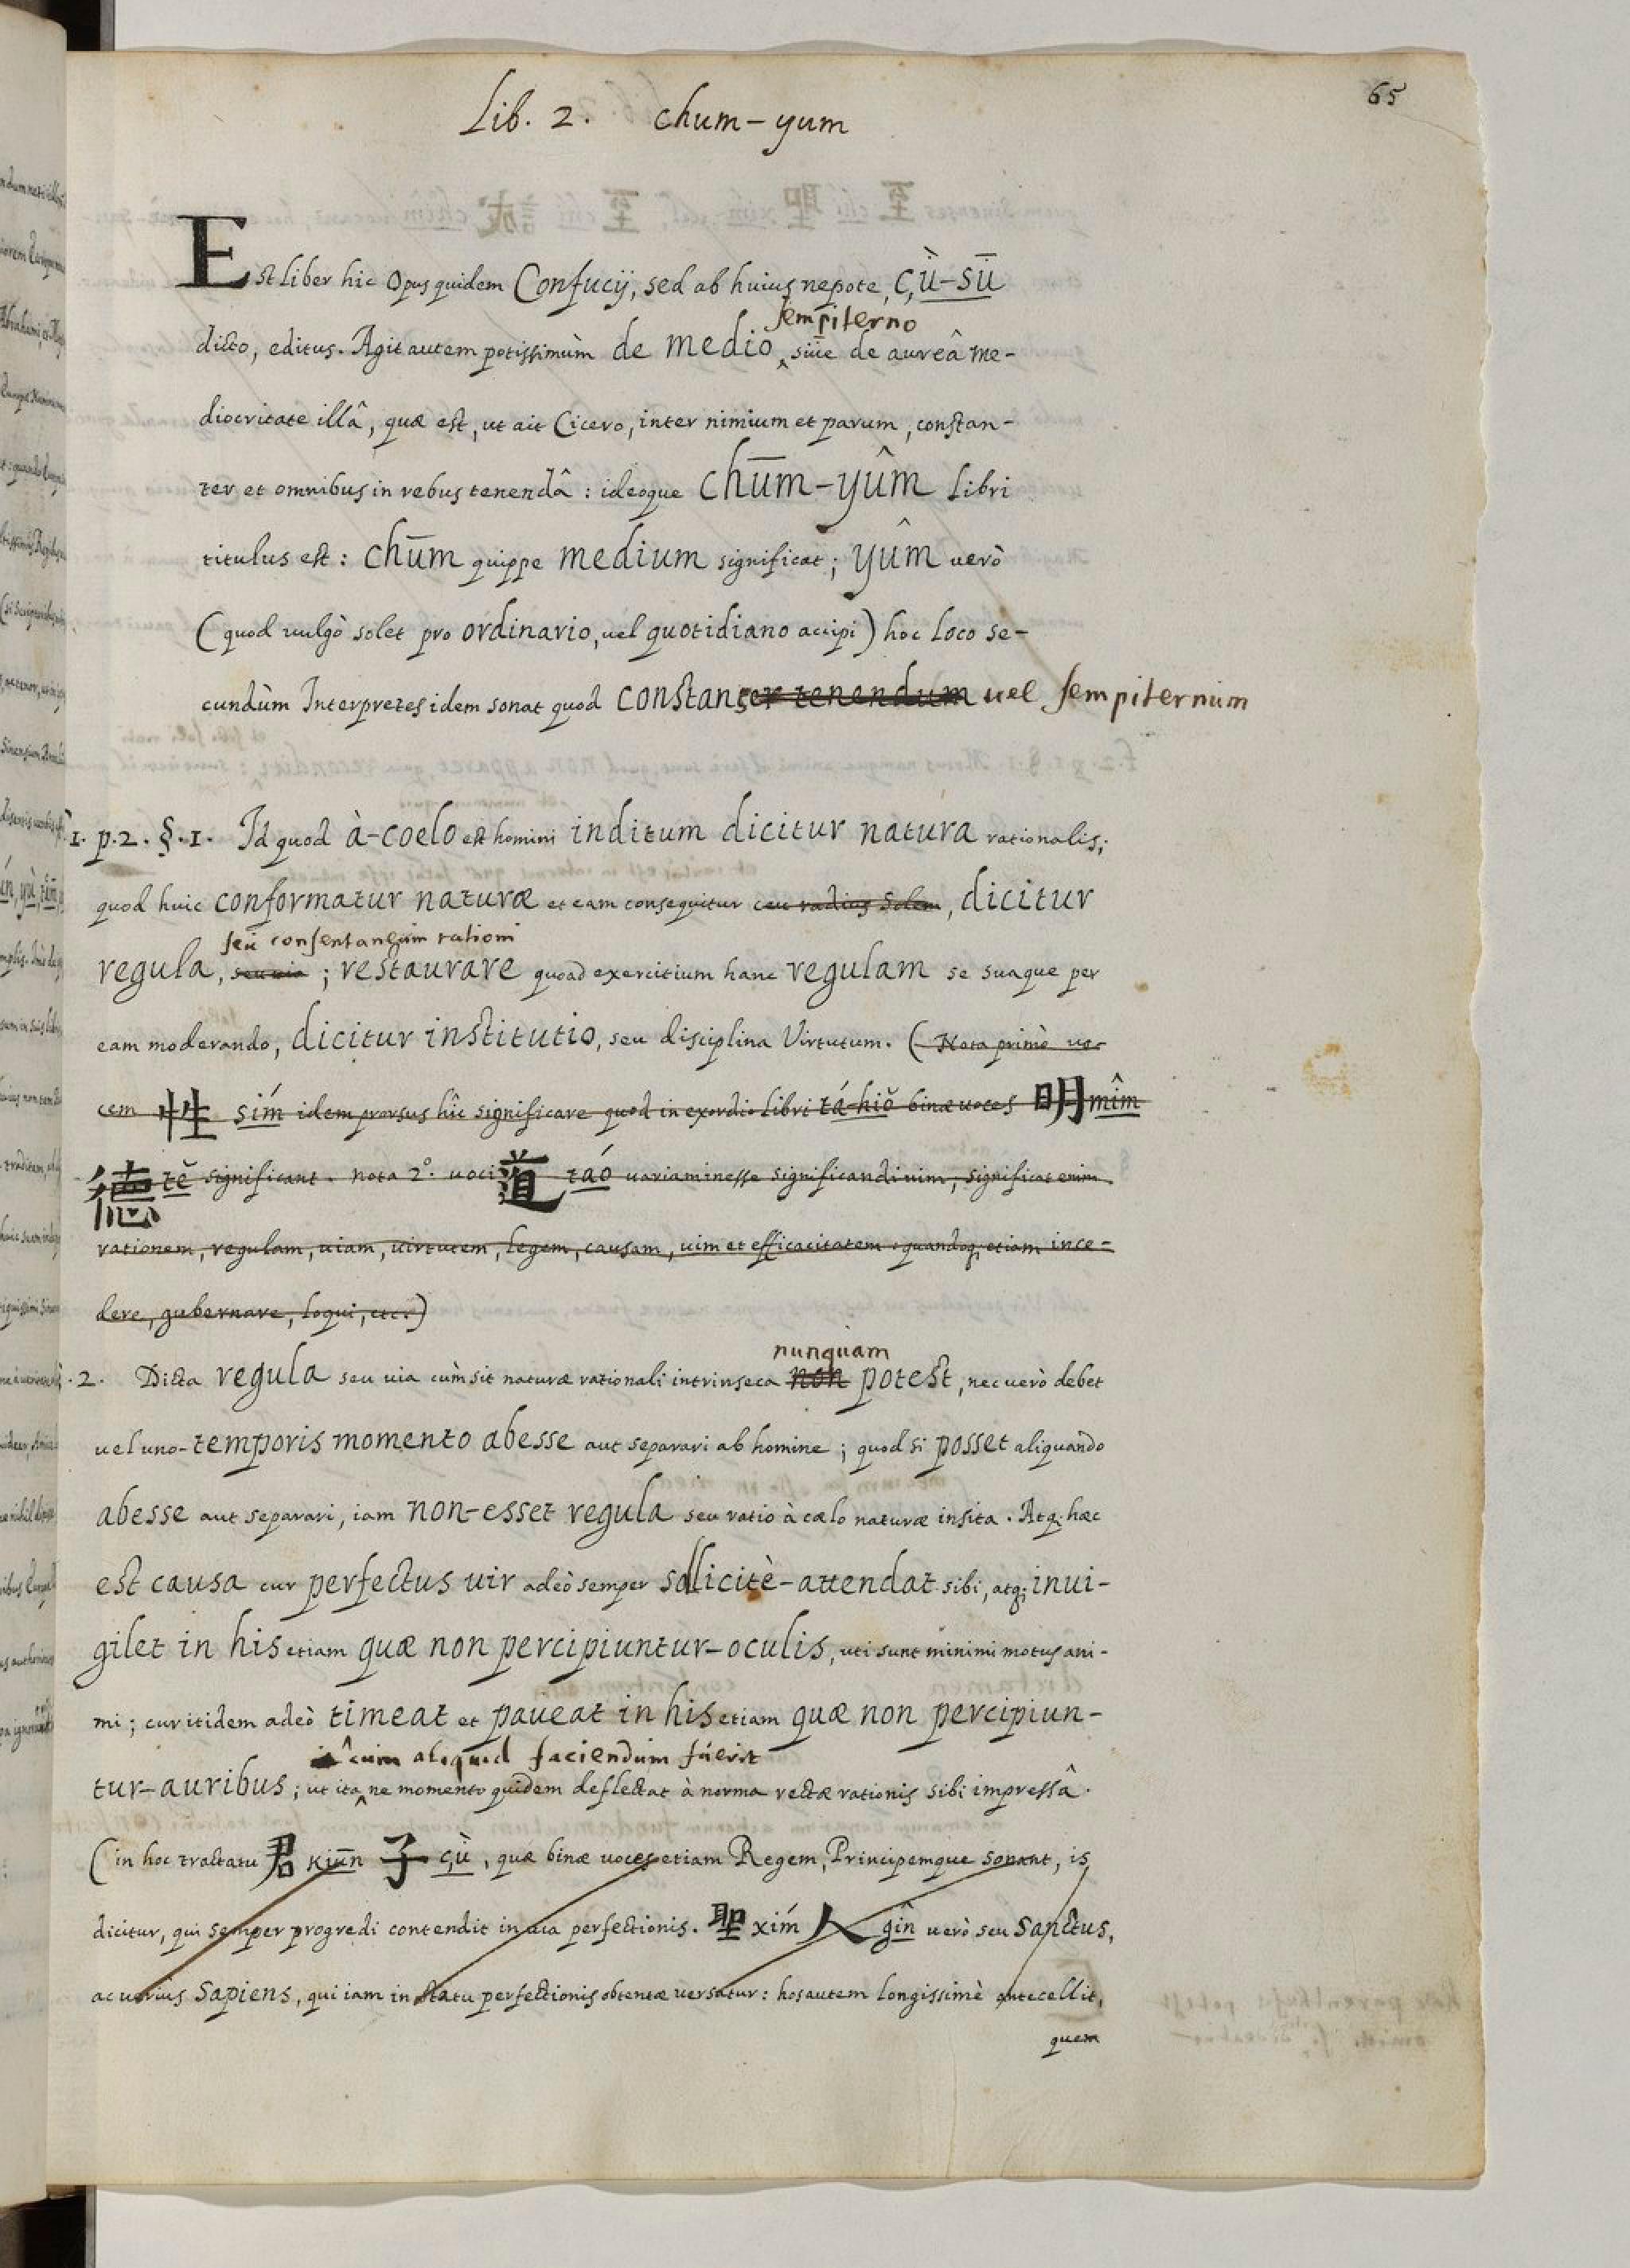 65
Lib. 2. chum-yum
Est liber hic Opus quidem Confucij, sed ab huius nepote, Cù-sū
sempiterno
dicto, editus. Agit autem potissimùm de medio, siue de aureâ me-
diocritate illâ, quæ est, ut ait Cicero, inter nimium et parum, constan-
ter et omnibus in rebus tenendâ: ideoque chūm-yûm Libri
titulus est: chūm quippe medium significat; yûm uerò
(quod uulgò solet pro ordinario, uel quotidiano accipi) hoc loco se-
cundùm Interpretes idem sonat quod constanter tenendum uel sempiternum
1. p. 2. §. 1. Id quod à-coelo est homini inditum dicitur natura rationalis;
quod huic conformatur naturæ et eam consequitur ceu radius Solem, dicitur
seu consentaneum rationi
regula, seu uia; restaurare quoad exercitium hanc regulam se suaque per
eam moderando, dicitur institutio, seu disciplina Virtutum. (Nota primò uo-
cem 性 sím idem prorsus hîc significare quod in exordio libri tá-hiŏ binæ uoces 明 mîm
德 tĕ significant. nota 2º. uoci 道 táo uariam inesse significandi uim, significat enim
rationem, regulam, uiam, uirtutem, legem, causam, uim et efficacitatem. quandoq; etiam ince-
dere, gubernare, loqui, etc.)
nunquam
.2. Dicta regula seu uia cùm sit naturæ rationali intrinseca non potest, nec uerò debet
uel uno-temporis momento abesse aut separari ab homine; quod si posset aliquando
abesse aut separari, iam non-esset regula seu ratio à cælo naturæ insita. Atq; hæc
est causa cur perfectus uir adeò semper sollicitè-attendat sibi, atq; inui-
gilet in his etiam quæ non percipiuntur-oculis, uti sunt minimi motus ani-
mi; cur itidem adeò timeat et paueat in his etiam quæ non percipiun-
cum aliquid faciendum fuerit
tur-auribus; ut ita ne momento quidem deflectat à norma rectæ rationis sibi impressâ.
(in hoc tractatu 君 kiūn 子 çù, quæ binæ uoces etiam Regem, Principemque sonant, is
dicitur, qui semper progredi contendit in uia perfectionis. 聖 xím 人 gîn uerò seu Sanctus,
ac uerius Sapiens, qui iam in statu perfectionis obtentæ uersatur: hos autem longissimè antecellit,
quem